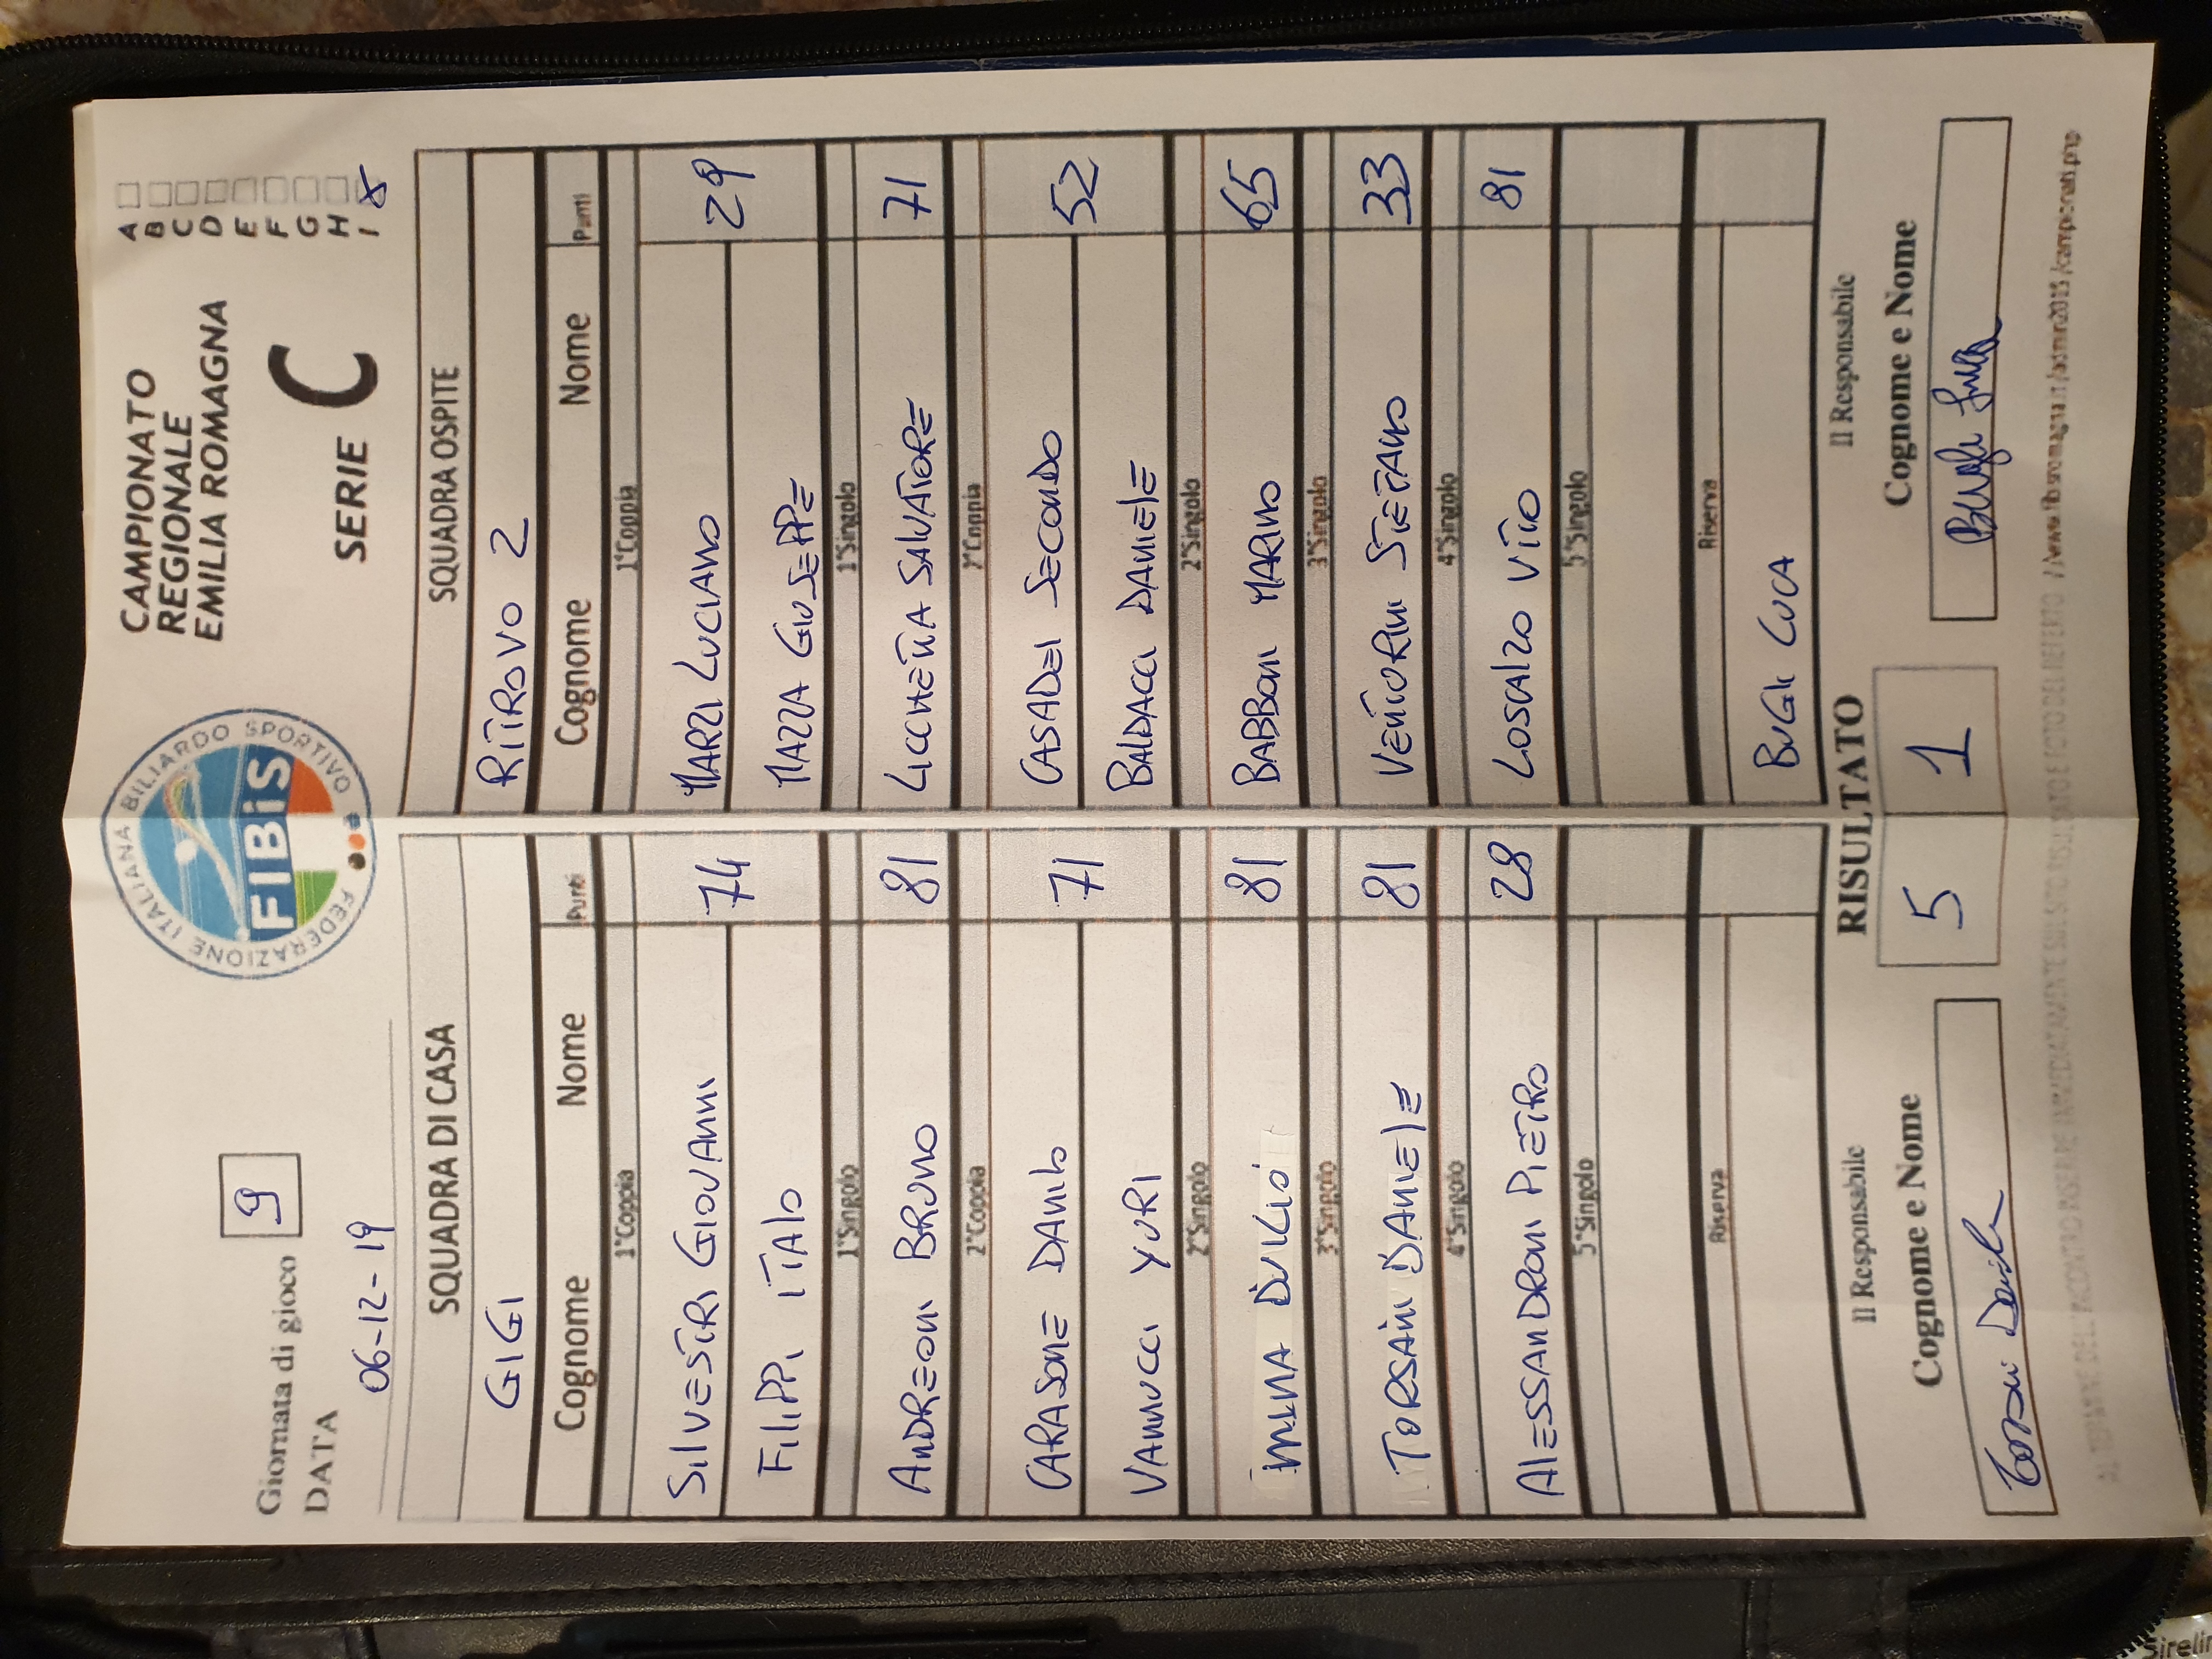 Giornata di gioco 9
DATA 06-12-19
FEDERAZIONE ITALIANA BILIARDO SPORTIVO
FIBiS
CAMPIONATO
REGIONALE
EMILIA ROMAGNA
SERIE C
A
B
C
D
E
F
G
H
I X
SQUADRA DI CASA
GIGI
Cognome Nome Punti
1°Coppia
SILVESTRI GIOVANNI 74
FILIPPI ITALO
1°Singolo
ANDREONI BRUNO 81
2°Coppia
CARASONE DANILO 71
VANNUCCI YURI
2°Singolo
DUILIO 81
3°Singolo
TORSANI DANIELE 81
4°Singolo
ALESSANDRONI PIETRO 28
5°Singolo
Riserva
SQUADRA OSPITE
RITROVO 2
Cognome Nome Punti
1°Coppia
MARZI LUCIANO 29
MAZZA GIUSEPPE
1°Singolo
LICCHETTA SALVATORE 71
2°Coppia
CASADEI SECONDO 52
BALDACCI DANIELE
2°Singolo
BABBONI MARINO 65
3°Singolo
VENTORINI STEFANO 33
4°Singolo
LOSCALZO VITO 81
5°Singolo
Riserva
BUGLI LUCA
RISULTATO
5 1
Il Responsabile
Cognome e Nome
Il Responsabile
Cognome e Nome